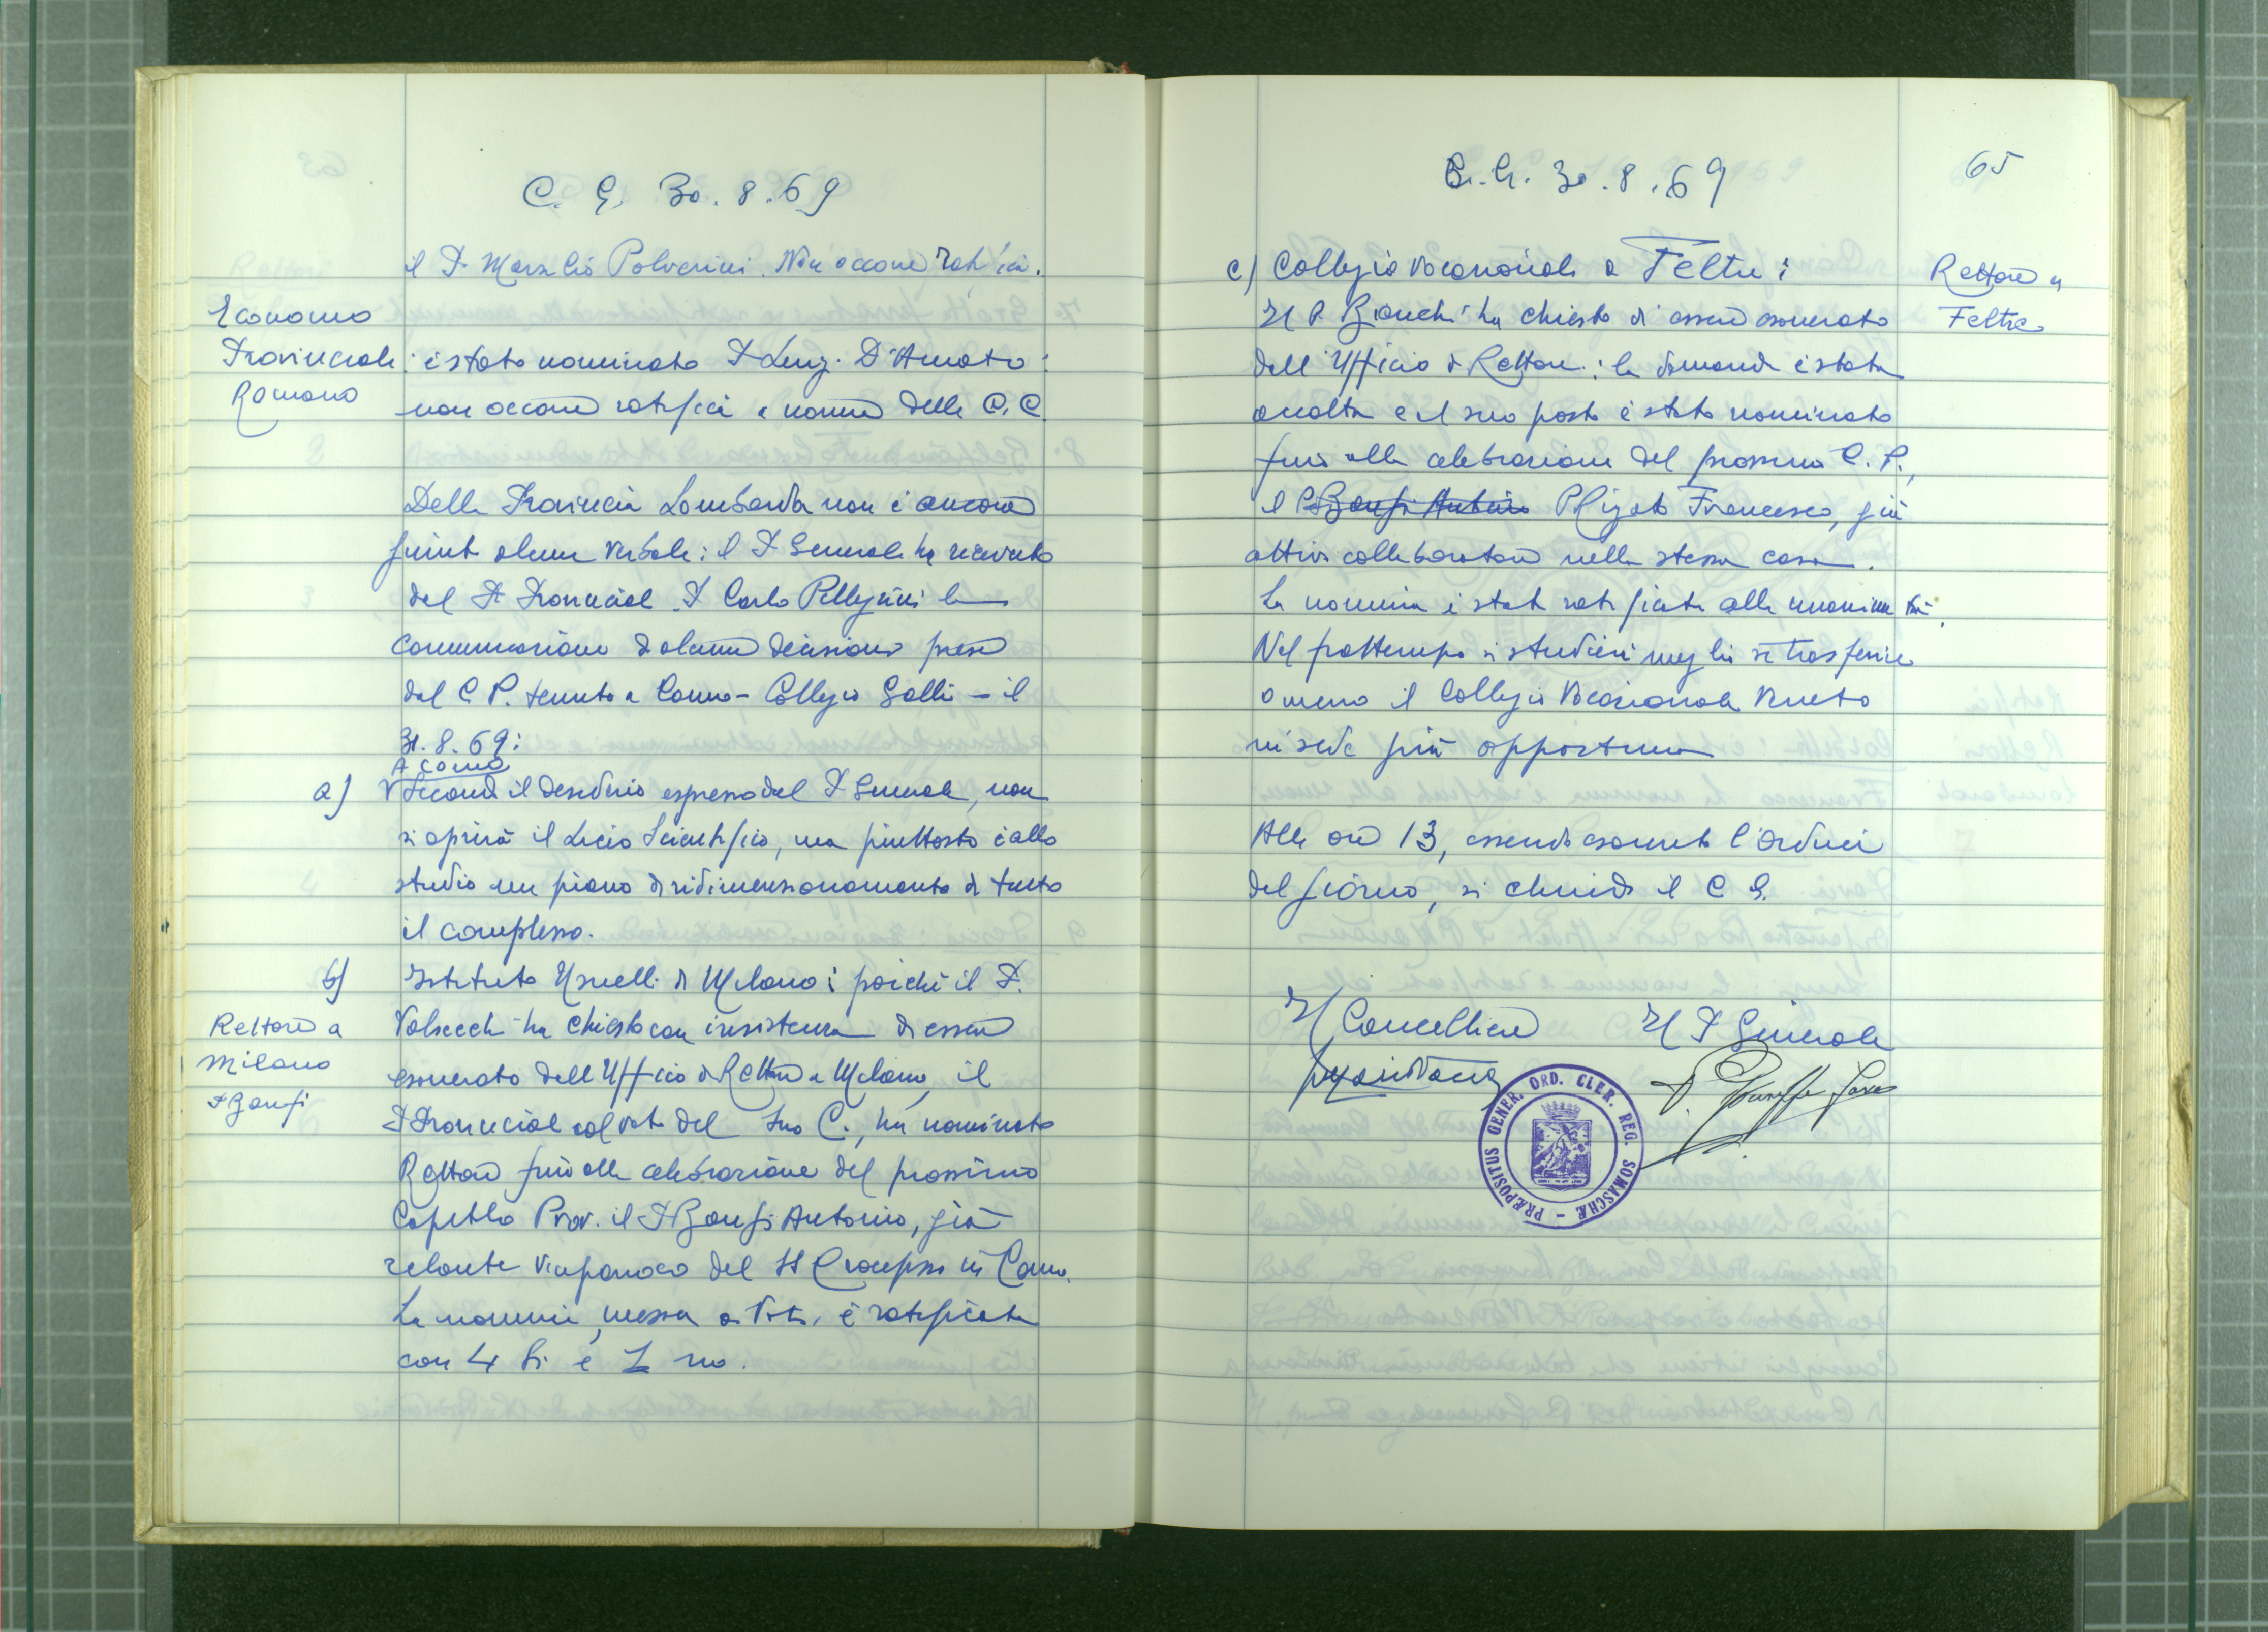 C. G. 30. 8. 69
il P. Marzlio Polverini. Non occorre ratifica.
Economo
Provinciale
Romano
: è stato nominato P Luig. D'Amato:
non occorre ratifica a norma delle C. C.
Della Provincia Lombarda non è ancora
giunto alcun verbale: il P Generale ha ricevuto
dal P. Provinciale P Carlo Pellegrini la
comunicazione di alcune decisioni prese
dal C P. tenuto a Como - Collegio Gallio - il
31. 8. 69:
A Como
a) Secondo il desiderio espresso dal P Generale, non
si aprirà il Liceo Scientifico, ma piuttosto è allo
studio un piano di ridimensionamento di tutto
il complesso.
b) Istituto Usuelli di Milano: poichè il P.
Rettore a
Milano
P Bonfi
Valsecchi ha chiesto con insistenza di essere
esonerato dall'Ufficio di Rettore a Milano, il
P Provinciale col voto del suo C., ha nominato
Rettore fino alla celebrazione del prossimo
Capitolo Prov. il P Bonfi Antonio, già
zelante viceparroco del SS Crocifisso in Como.
La nomina, messa ai voti, è ratificata
con 4 si e 1 no.
C. G. 30. 8. 69
65
c) Collegio vocazionale a Feltre:
Rettore a
Feltre
Il P. Bianchi ha chiesto di essere esonerato
dall'Ufficio di Rettore: la domanda è stata
accolta e al suo posto è stato nominato
fino alla celebrazione del prossimo C. P.,
il P Bonfi Antonio P Rigato Francesco, già
attivo collaboratore nella stessa casa.
La nomina è stata ratificata alla unanimità.
Nel frattempo si studierà meglio se trasferire
o meno il Collegio Vocazionale Veneto
in sede più opportuna
Alle ore 13, essendo esaurito l'ordine
del giorno, si chiude il C G.
Il Cancelliere Il P Generale
PRÆPOSITUS GENER. ORD. CLER. REG. SOMASCHÆ